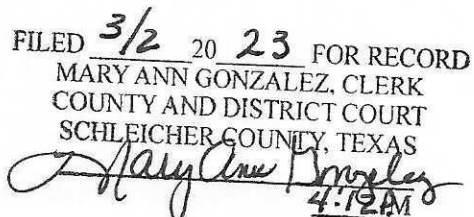 FILED 3/2 20 23 FOR RECORD
MARY ANN GONZALEZ, CLERK
COUNTY AND DISTRICT COURT
SCHLEICHER COUNTY, TEXAS
Mary Ann Gonzalez
4:12PM